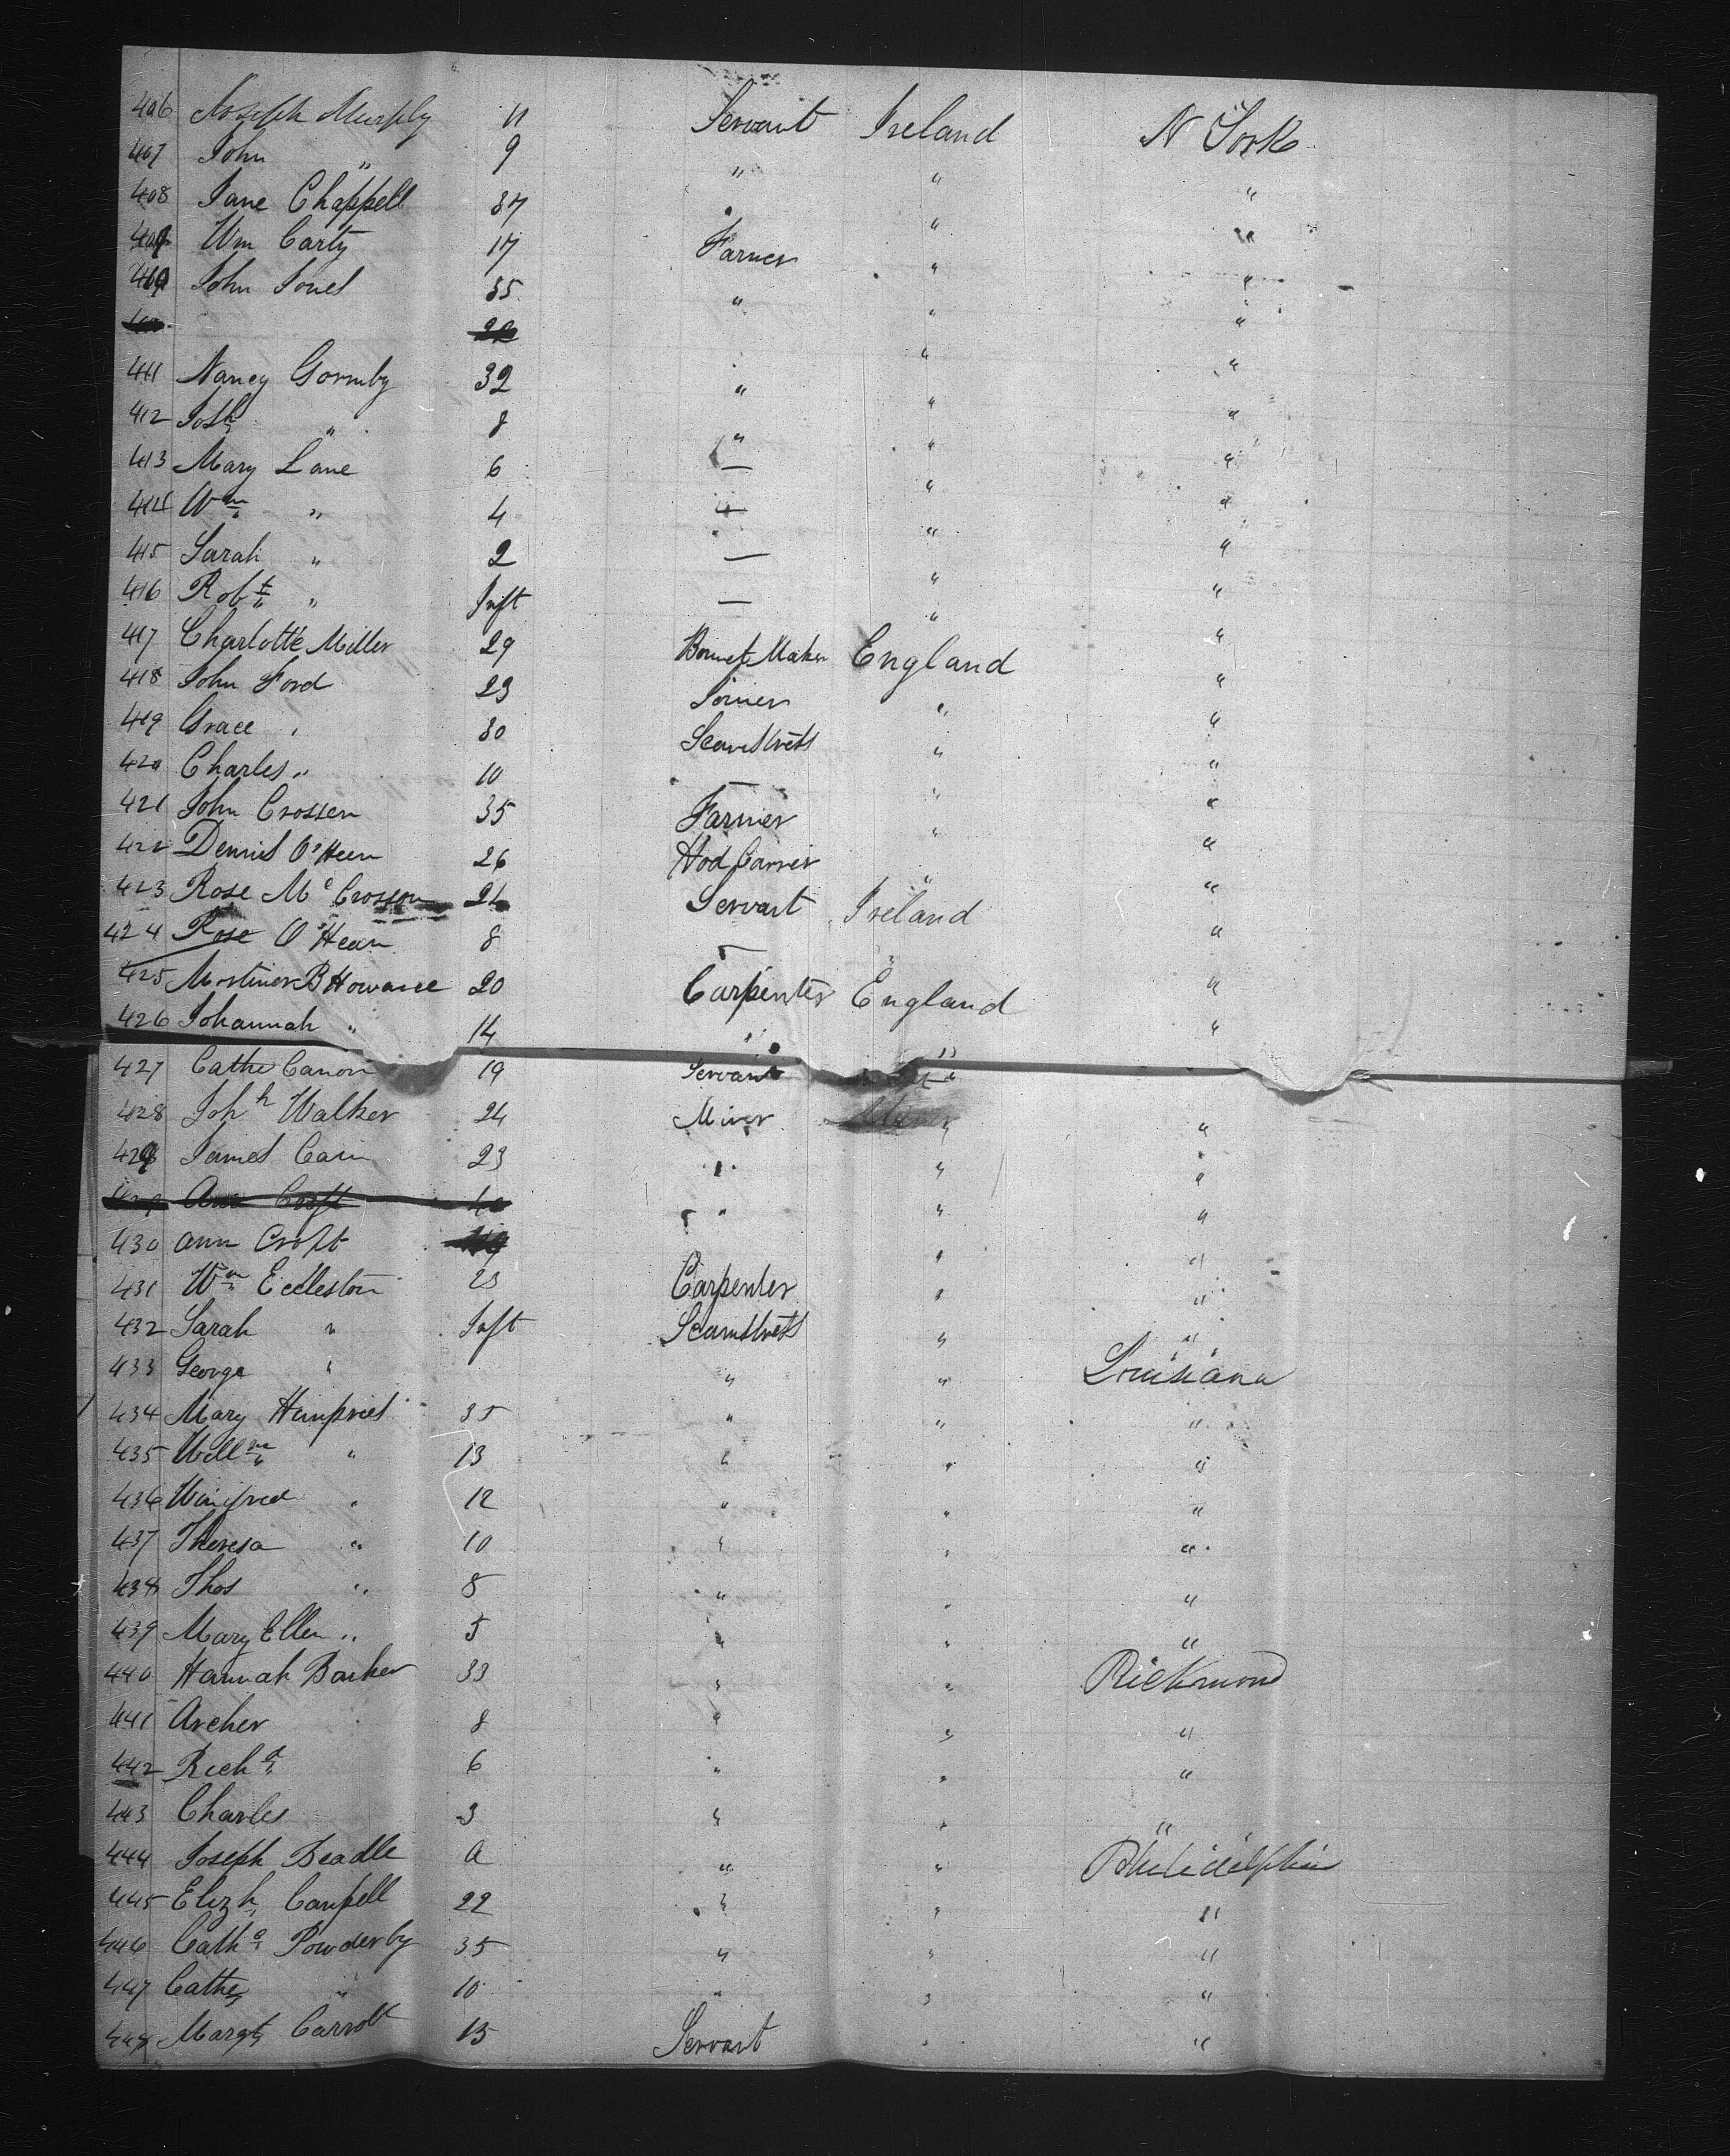 406 Joseph Murphy 11 Servant Ireland N York
407 John " 9 " " "
408 Jane Chappell 37 " "
409 Wm Carty 17 Farmer " "
410 John Jones 35 " " "
411 Nancy Gormby 32 " " "
412 Josh " 8 " " "
413 Mary Lane 6 — " "
414 Wm " 4 — " "
415 Sarah " 2 — " "
416 Robt " Inft — " "
417 Charlotte Miller 29 Bonnet Maker England "
418 John Ford 23 Joiner " "
419 Grace " 30 Seamstress " "
420 Charles " 10 — " "
421 John Crossen 35 Farmer " "
422 Dennis O'Heen 26 Hod Carrier " "
423 Rose Mc Crosson 21 Servant Ireland "
424 Rose O'Hean 8 — " "
425 Mortimer B Howard 20 Carpenter England "
426 Johannah " 14 " " "
427 Cathe Canon 19 Servant "
428 Johh Walker 24 Miner " "
429 James Cain 23 " " "
Ann Croft 40 " " "
430 Ann Croft " "
431 Wm Eccleston 23 Carpenter " "
432 Sarah " Inft Seamstress " "
433 George " " " Louisiana
434 Mary Humpries 35 " " "
435 Willm " 13 " " "
436 Winifred " 12 " " "
437 Theresa " 10 " " "
438 Thos " 8 " " "
439 Mary Ellen " 5 " " "
440 Hannah Barker 33 " " Richmond
441 Archer 8 " " "
442 Richd 6 " " "
443 Charles 3 " " "
444 Joseph Beadle a " " Philidelphia
445 Elizh Canpell 22 " " "
446 Cathe Powderby 35 " " "
447 Cathe " 10 " " "
448 Margt Carroll 15 Servant " "